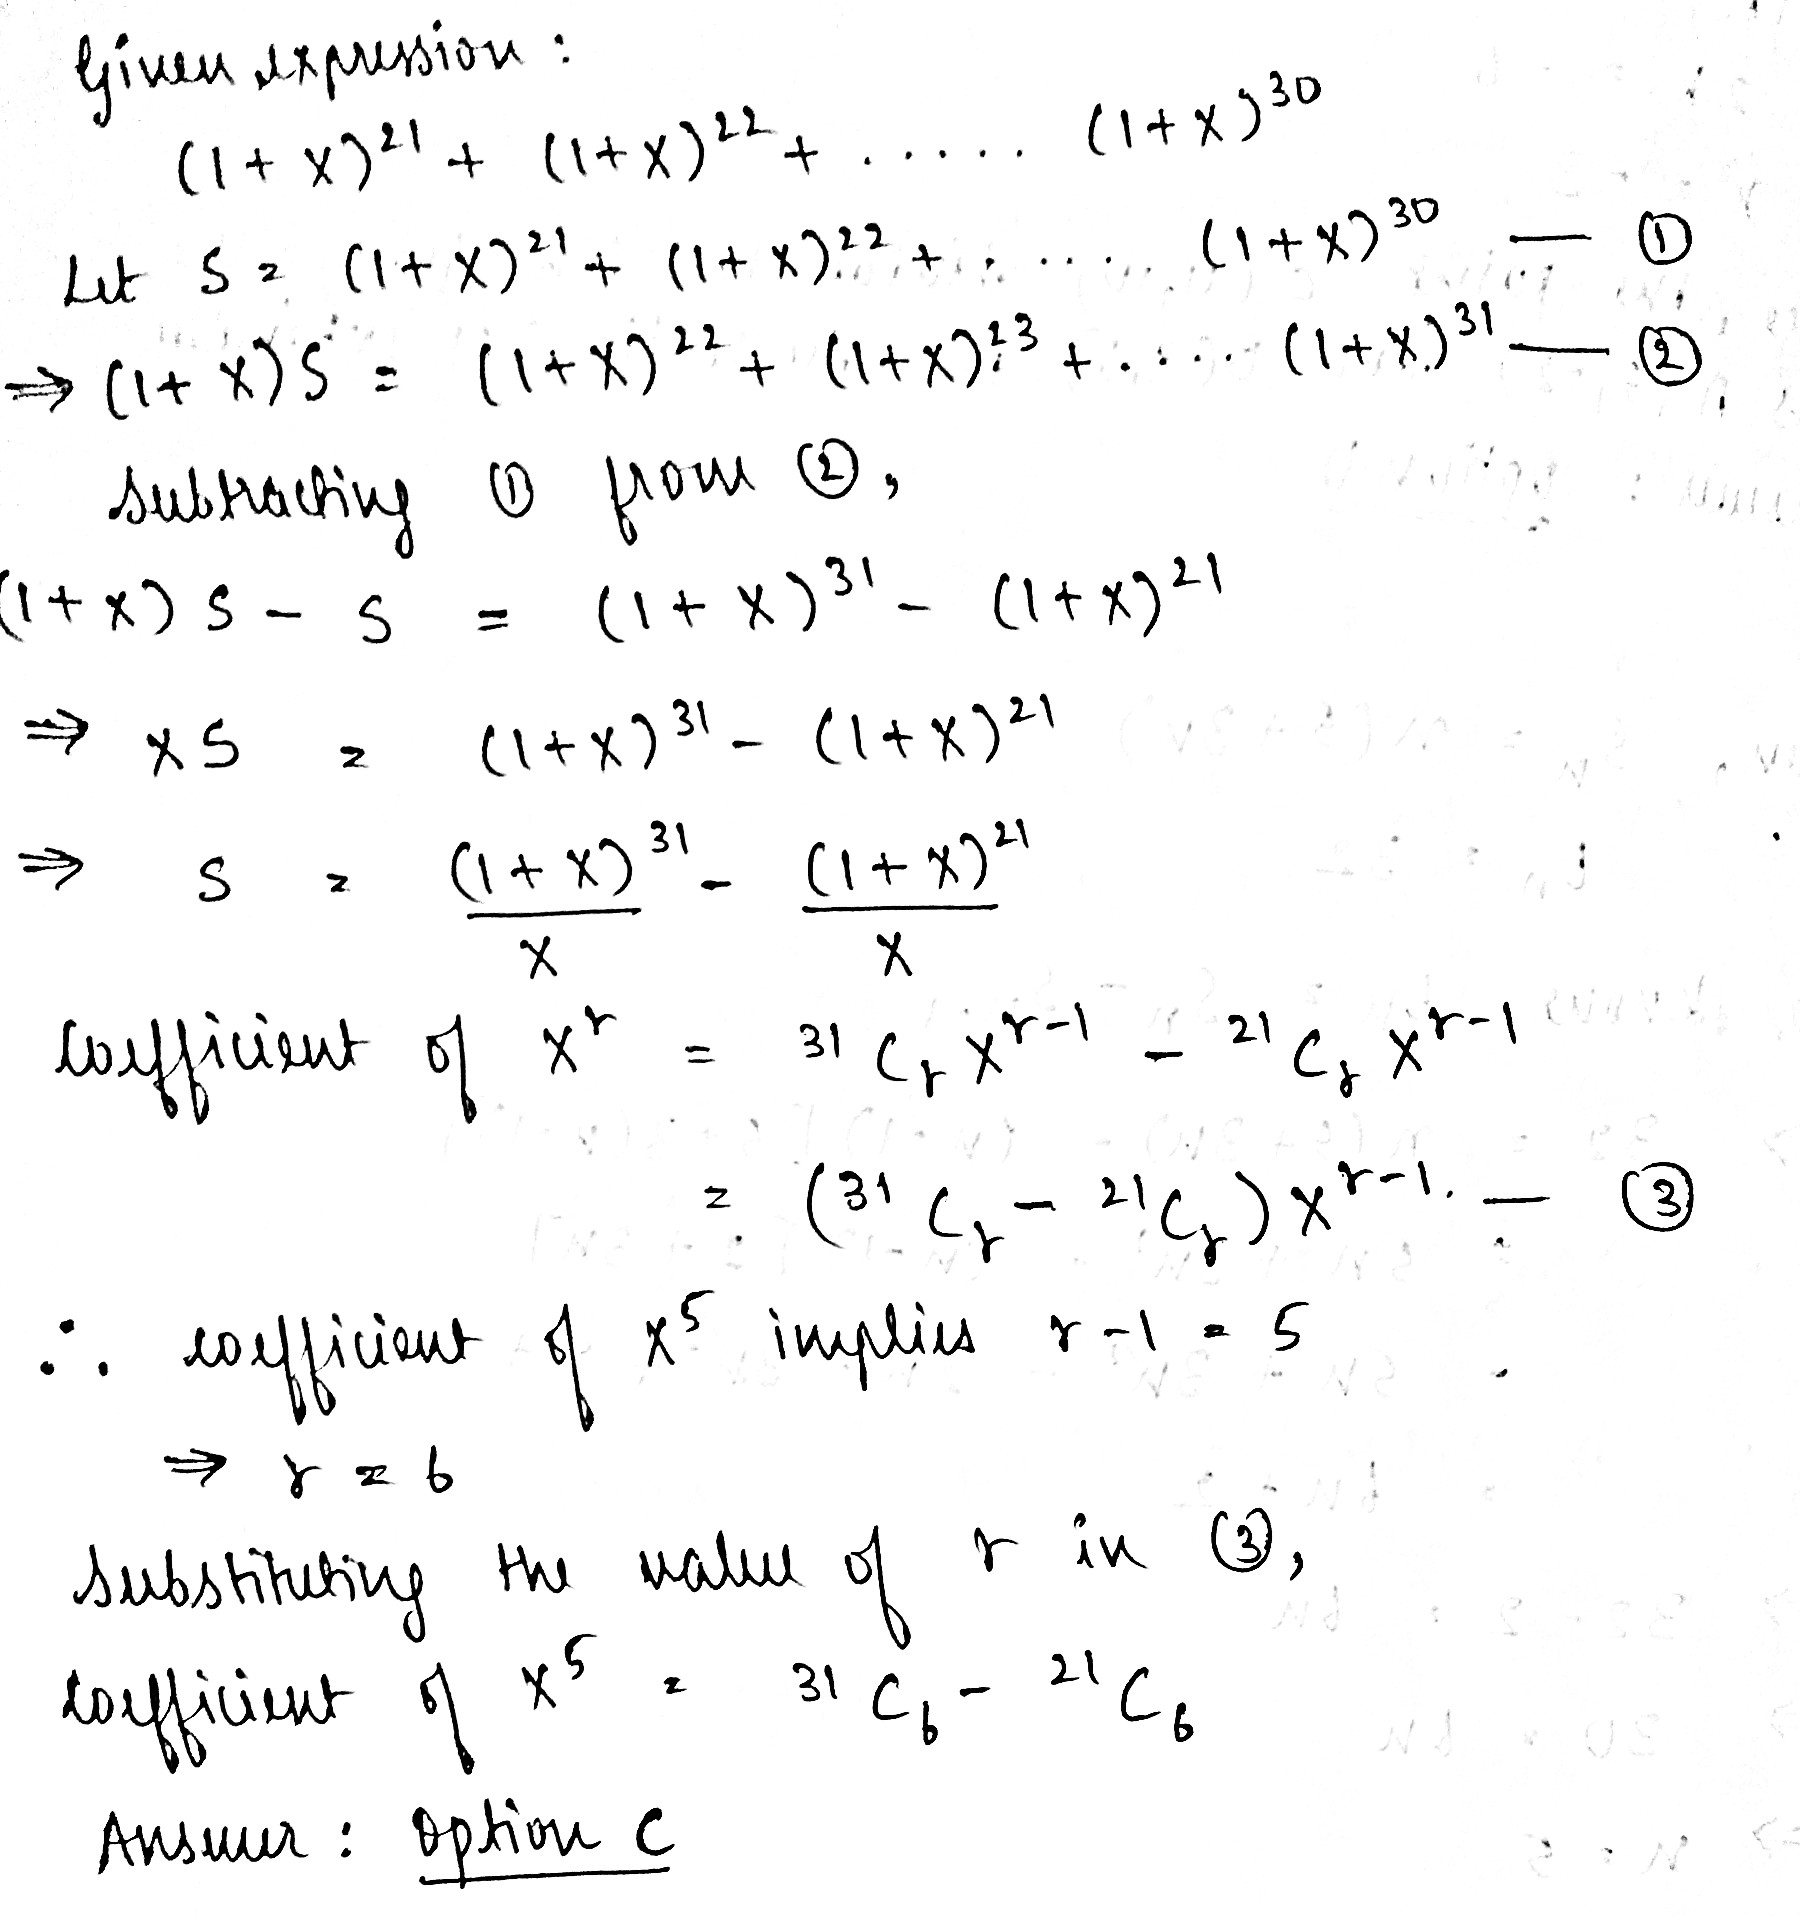 Given expression :
(1+x)²¹ + (1+x)²² + ..... (1+x)³⁰
Let S = (1+x)²¹ + (1+x)²² + ..... (1+x)³⁰ — ①
⇒ (1+x)S = (1+x)²² + (1+x)²³ + ..... (1+x)³¹ — ②
Subtracting ① from ②,
(1+x)S - S = (1+x)³¹ - (1+x)²¹
⇒ xS = (1+x)³¹ - (1+x)²¹
⇒ S = (1+x)³¹/x - (1+x)²¹/x
Coefficient of xʳ = ³¹Cᵣ xʳ⁻¹ - ²¹Cᵣ xʳ⁻¹
= (³¹Cᵣ - ²¹Cᵣ) xʳ⁻¹. — ③
∴ coefficient of x⁵ implies r-1 = 5
⇒ r = 6
Substituting the value of r in ③,
Coefficient of x⁵ = ³¹C₆ - ²¹C₆
Answer : Option C